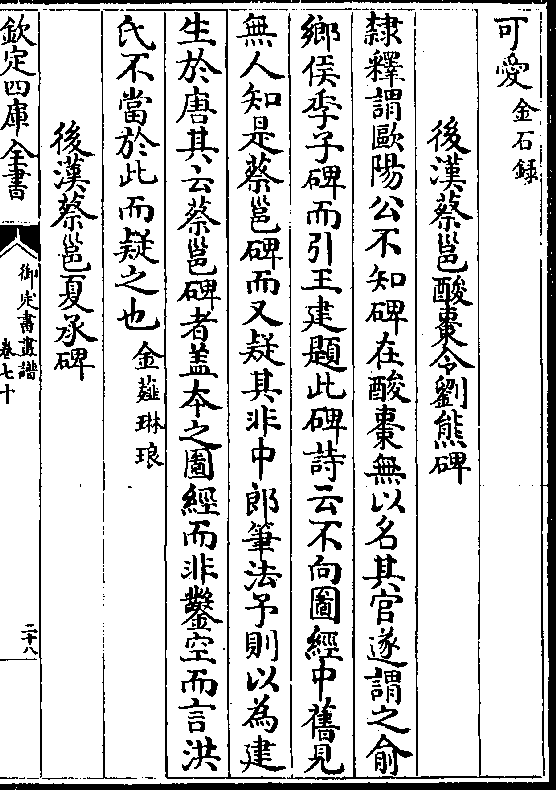 可愛金石録
後漢蔡邕酸棗令劉熊碑
隸釋謂歐陽公不知碑在酸棗無以名其官遂謂之俞
鄉侯季子碑而引王建題此碑詩云不向圖經中舊見
無人知是蔡邕碑而又疑其非中郎筆法予則以為建
生於唐其云蔡邕碑者盖本之圖經而非鑿空而言洪
氏不當於此而疑之也金薤琳琅
後漢蔡邕夏承碑
欽定四庫全書
御定書畫譜
卷七十
二十八